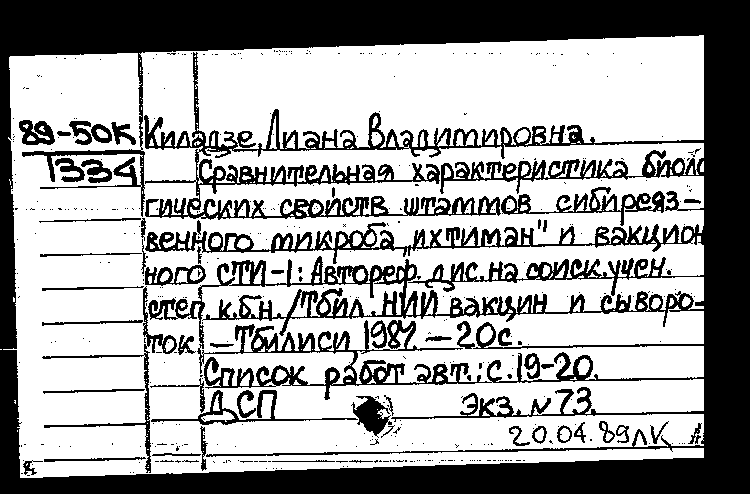 89-50К Киладзе, Лиана Владимировна.
1334 Сравнительная характеристика биоло
гических свойств штаммов сибиреяз-
венного микроба „ихтиман" и вакцион
ного СТИ-1: Автореф. дис. на соиск. учен.
степ. к.б.н. /Тбил. НИИ вакцин и сыворо-
ток. — Тбилиси, 1987. — 20с.
Список работ авт.: с. 19-20.
ДСП Экз. №73.
20.04.89 ЛК